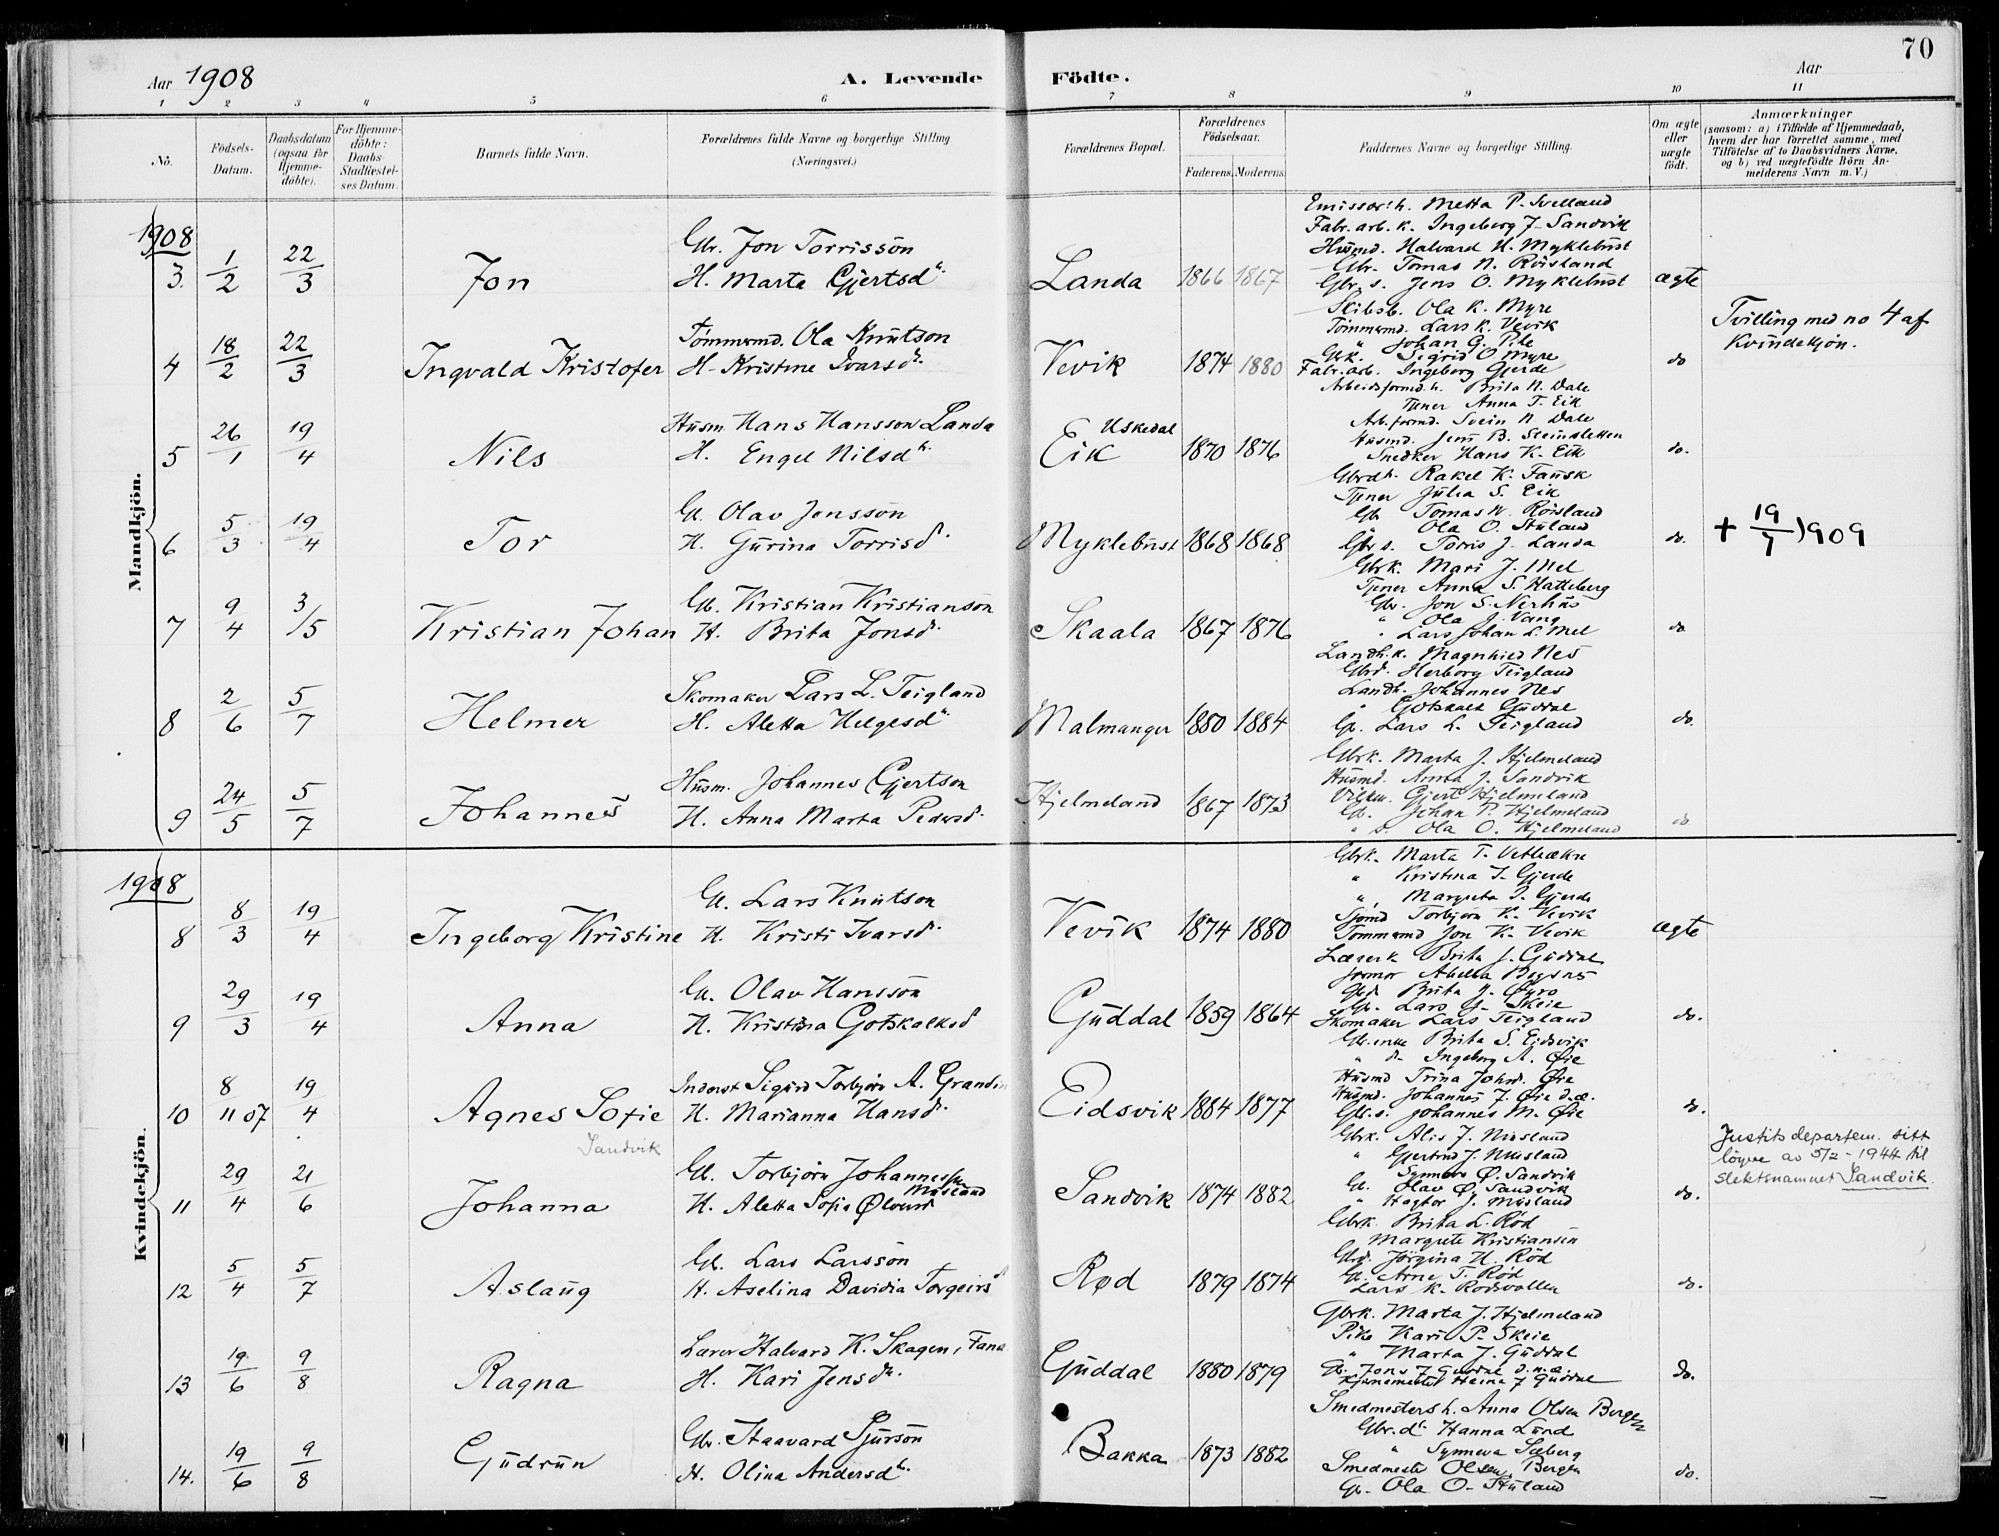 70
Aar 1908 A. Levende Födte. Aar
1 2 3 4 5 6 7 8 9 10 11
No. Födsels-Datum. Daabsdatum (ogsaa for Hjemme-döbte). For Hjemme-döbte: Daabs-Stadfæstel-ses Datum. Barnets fulde Navn. Forældrenes fulde Navne og borgerlige Stilling (Næringsvei.) Forældrenes Bopæl. Forældrenes Födselsaar. Faderens. Moderens. Faddernes Navne og borgerlige Stilling. Om ægte eller uægte födt. Anmærkninger (saasom: a) i Tilfælde af Hjemmedaab, hvem der har forrettet samme, med Tilföielse af to Daabsvidners Navne, og b) ved uægtefödte Börn An-melderens Navn m. V.)
Mandkjön.
1908
3. 1/2 22/3 Jon
Gbr. Jon Torrisson
H. Marta Gjertsd.
Landa 1866 1867
Emissær h. Metta P. Svelland
Fabr. arb. k. Ingeborg J. Sandvik
Husmd. Halvard H. Myklebust
Gbr. Tomas N. Röisland
Gbr. s. Jens O. Myklebust
ægte
4 18/2 22/3 Ingvald Kristofer
Tømmermd. Ola Knutson
H. Kristine Ivarsd.
Vevik 1874 1880
Skibsb. Ola K. Myre
Tömmermd. Lars K. Vevik
" Johan G. Pile
Gbk. Sigrid O. Myre
Fabr. arb. Ingeborg Gjerde
do
Tvilling med no 4 af
Kvindekjön.
5 26/1 19/4 Nils
Husm. Hans Hansson Landa
H. Engel Nilsd.
Eik Uskedal 1870 1876
Arbeidsformd. h. Brita N. Dale
Tjener Anna T. Eik
Arb. formd. Svein N. Dale
Husmd. Jens B. Steinsletten
Snedker Hans K. Eik
do.
6 5/3 19/4 Tor
G. Olav Jensson
H. Gurina Torrisd.
Myklebust 1868 1868
Gbrdt. Rakel K. Fausk
Tjener Julia S. Eik
Gb. Tomas N. Röisland
" Ola O. Huland
Gbr. s. Torris J. Landa
do.
+ 19/7 1909
7 9/4 3/5 Kristian Johan
Gb. Kristian Kristianson
H. Brita Jonsd.
Skaala 1867 1876
Gbrk. Mari J. Mel
Tjener Anna S. Hatteberg
Gbr. Jon S. Nerhus
" Ola J. Vang
" Lars Johan L. Mel
do
8 2/6 5/7 Helmer
Skomaker Lars L. Teigland
H. Aletta Helgesd.
Malmanger 1880 1884
Landh. k. Magnhild Nes
Gbrd. Herborg Teigland
Landh. Johannes Nes
" Gotskalk Guddal
Gb. Lars L. Teigland
do.
9 24/5 5/7 Johannes
Husm. Johannes Gjertson
H. Anna Marta Pedersd.
Hjelmeland 1867 1873
Gbrk. Marta J. Hjelmeland
Husmd. Anna J. Sandvik
Gjert Hjelmeland
Gb. Johan P. Hjelmeland
" s. Ola O. Hjelmeland
do
Kvindekjön.
1908
8 8/3 19/4 Ingeborg Kristine
G. Lars Knutson
H. Kristi Ivarsd.
Vevik 1874 1880
Gbrk. Marta T. Vetleækre
" Kristina J. Gjerde
" Margreta J. Gjerde
Sjømd Torbjörn K. Vevik
Tømmermd Jon K. Vevik
ægte
9 29/3 19/4 Anna
G. Olav Hansson
H. Kristina Gotskalksd
Guddal 1859 1864
Lærerk Brita J. Guddal
Jormor Abelea
Gbd. Brita J. Øyro
Gb. Lars J. Skeie
Skomaker Lars Teigland
do.
10 8/11 07 19/4 Agnes Sofie
Inderst Sigurd Torbjörn A. Grandin
H. Marianna Hansd.
Eidsvik 1884 1877
Gbr. enke Brita S. Eidsvik
" d. Ingeborg A. Øie
Husmd Trina Johsd. Øie
Husmd. Johannes J. Øie d.æ.
Gbr. s. Johannes M. Øie
do.
Sandvik
11 29/4 21/6 Johanna
G. Torbjörn Johannessen
Musland
H. Aletta Sofia Ølversd
Sandvik 1874 1882
Gbrk. Alis J. Musland
" Gjertrud J. Musland
Synneva Ø. Sandvik
G. Olav Ø. Sandvik
" Hagtor J. Musland
do.
Justitsdepartem. sitt
löyve av 5/2 - 1944 til
slektsnamnet Sandvik.
12 5/4 5/7 Aslaug
Gb. Lars Larsson
H. Aselina Davidia Torgeirsd
Rød 1879 1874
Gbrk. Brita L. Rød
Margrete Kristiansen
Gbd. Jörgina H. Rød
G. Arne T. Rød
Lars K. Rødsvollen
do.
13 19/6 9/8 Ragna
Lærer Halvard K. Skagen, Fana
H. Kari Jensd.
Guddal 1880 1879
Gbrk. Marta J. Hjelmeland
Pike Kari P. Skeie
" Marta J. Guddal
Gb. Jens J. Guddal d.n.æ.
J. Guddal
do.
14. 19/6 9/8 Gudrun
Gbr. Haavard Sjurson
H. Olina Andersd.
Bakka 1873 1882
Smedmesters h. Anna Olsen Bergen
Gbr. d. Hanna Lund
" Synneva Sæberg
Smedmester Olsen, Bergen
Gb. Ola O. Huland
do.